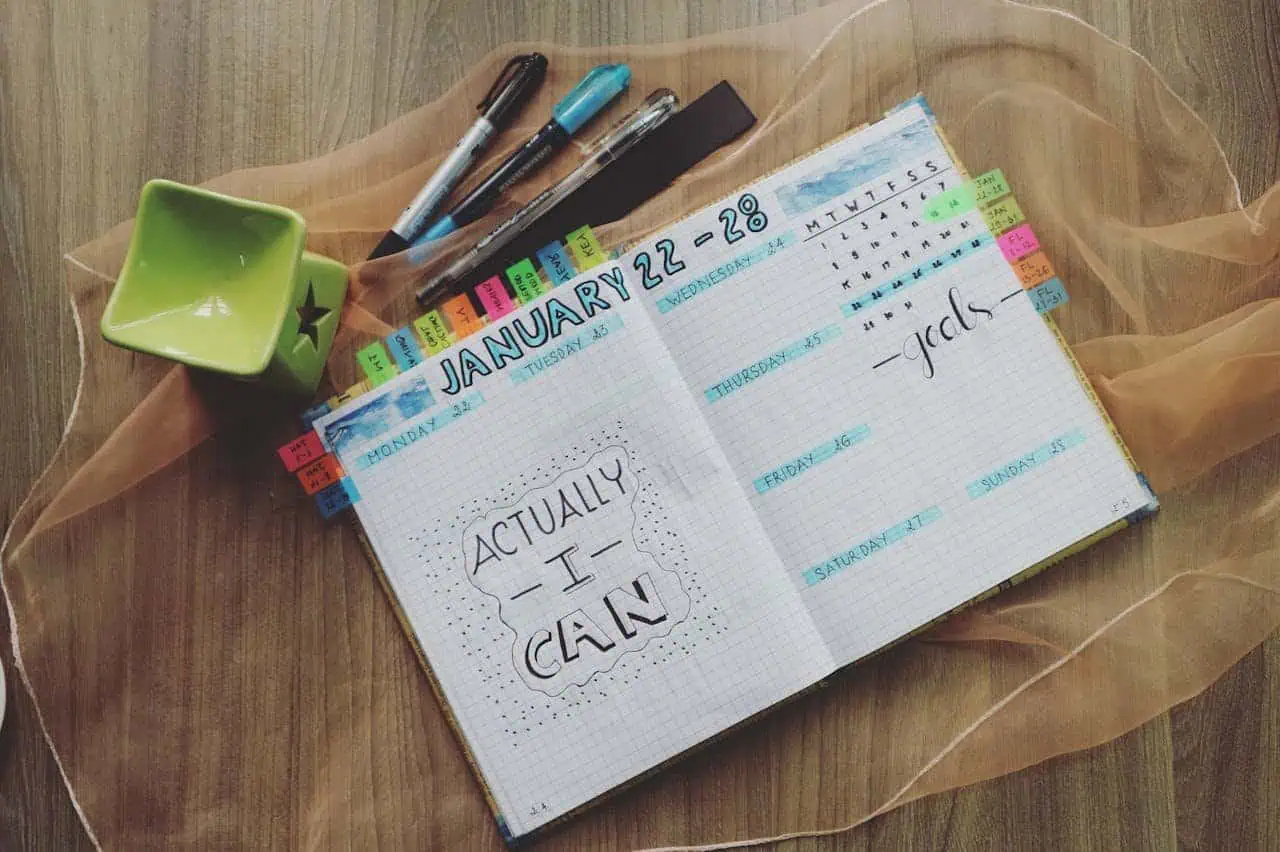 KEY
JANUARY 22 - 28
MONDAY 22
TUESDAY 23
ACTUALLY
- I -
CAN
24
WEDNESDAY 24
THURSDAY 25
FRIDAY 26
SATURDAY 27
M T W T F S S
1 2 3 4 5 6 7
8 9 10 11 12 13 14
15 16 17 18 19 20 21
22 23 24 25 26 27 28
29 30 31
- goals -
SUNDAY 28
25
JAN
22-28
JAN
29-31
FL
1-12
FL
13-26